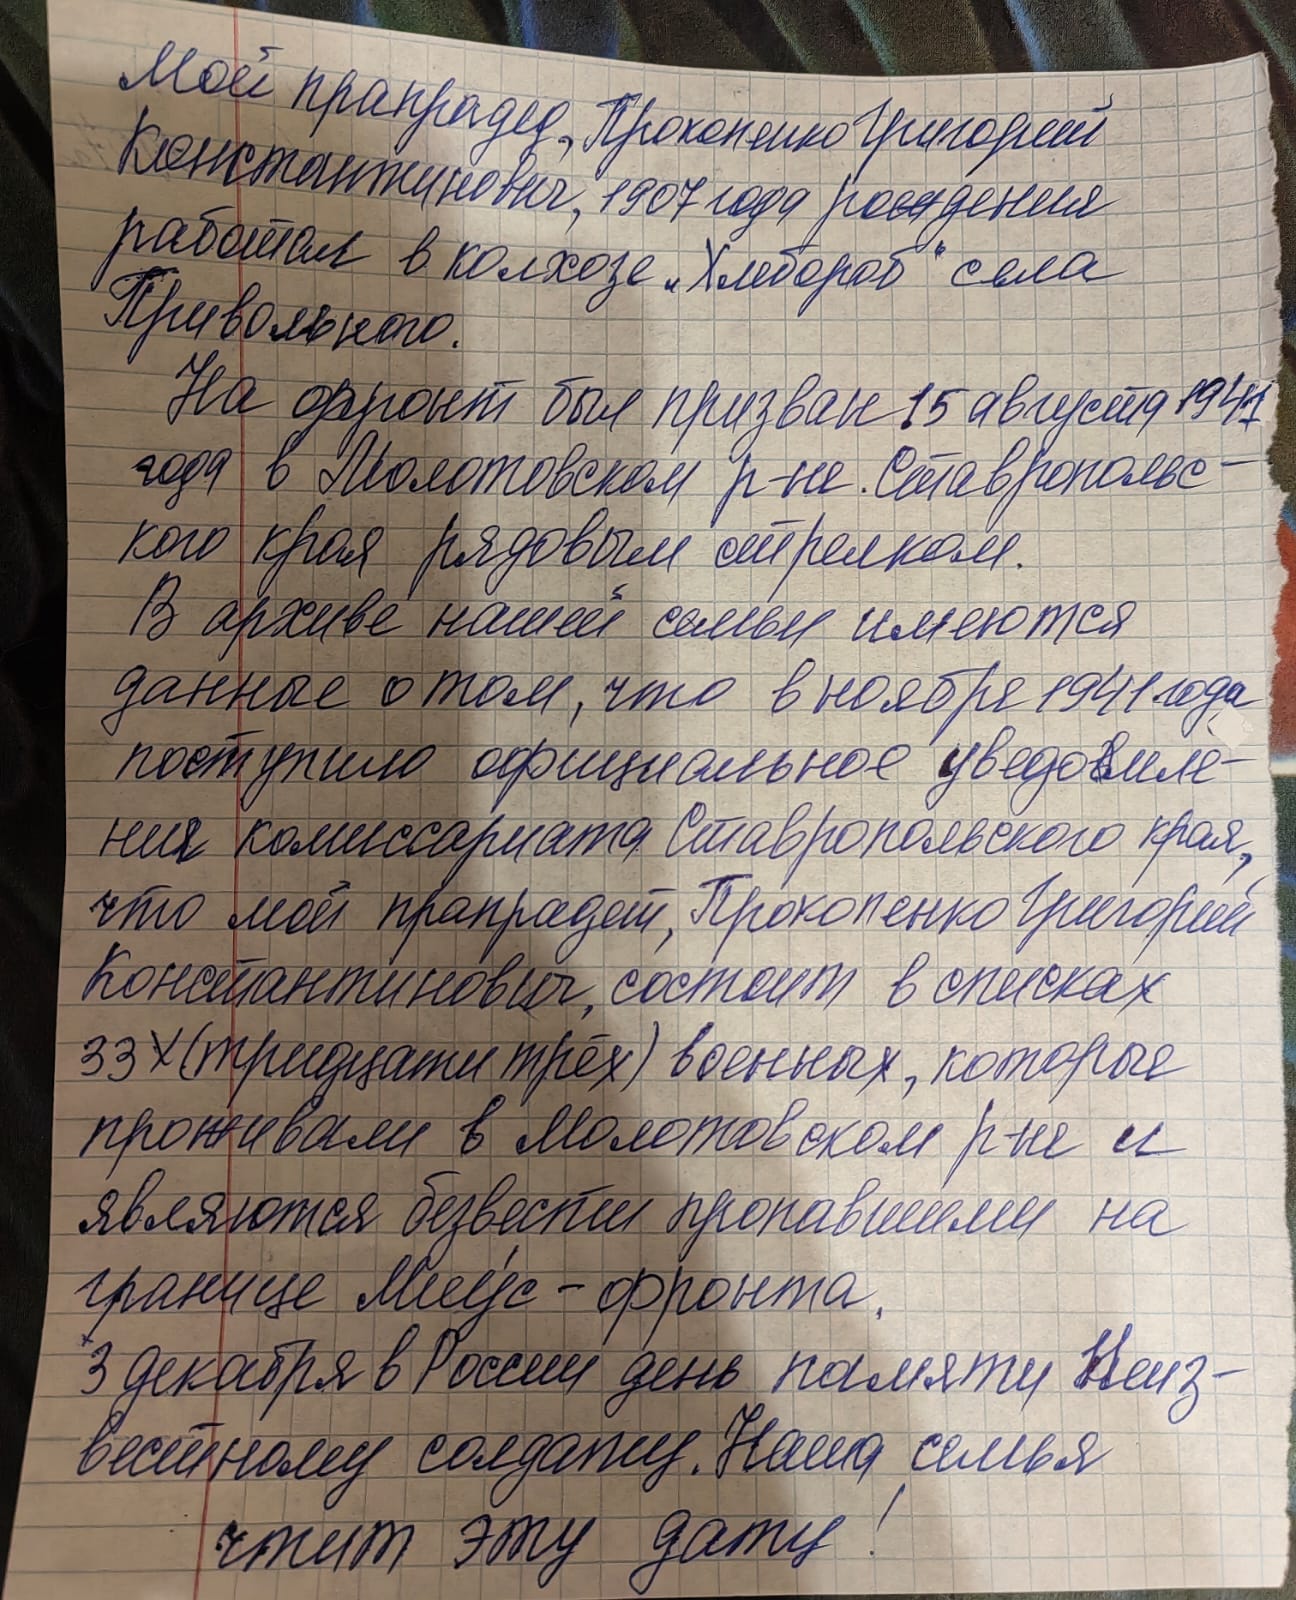 Мой прапрадед, Прокопенко Григорий
Константинович, 1907 года рождения
работал в колхозе „Хлебороб" села
Привольного.
На фронт был призван 15 августа 1941
года в Молотовском р-не. Ставропольс-
кого края рядовым стрелком.
В архиве нашей семьи имеются
данные о том, что в ноябре 1941 года
поступило официальное уведовмле-
ния комиссариата Ставропольского края,
что мой прапрадет, Прокопенко Григорий
Константинович, состоит в списках
33х (тридцати трёх) военных, которые
проживали в Молотовском р-не и
являются безвести пропавшими на
границе Миус-фронта.
3 декабря в России день памяти Неиз-
вестному солдату. Наша семья
чтит эту дату!